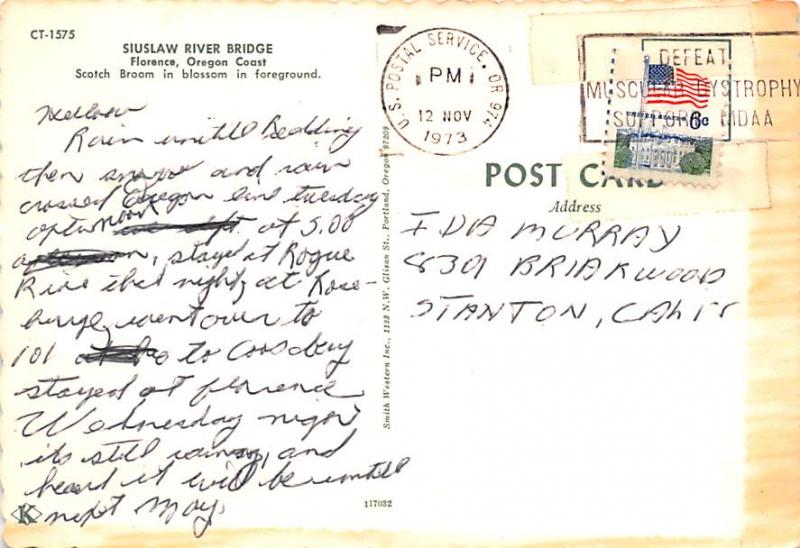 CT-1575
SIUSLAW RIVER BRIDGE
Florence, Oregon Coast
Scotch Broom in blossom in foreground.
Rain untill Redding
then snow and rain
crossed Oregon line tuesday
afternoon at 5.00
stayed at Rogue
River that night, at Rose-
burge went over to
101 to Coosbay
stayed at florence
Wednesday night
its still raining, and
heard it will be untill
next May.
K
117032
Smith Western Inc., 1133 N.W. Glisan St., Portland, Oregon 97209
U.S. POSTAL SERVICE, OR 974
PM
12 NOV
1973
DEFEAT
MUSCULAR DYSTROPHY
SUPPORT MDAA
UNITED STATES 6c
POST CARD
Address
IDA MURRAY
8391 BRIARWOOD
STANTON, CALIF